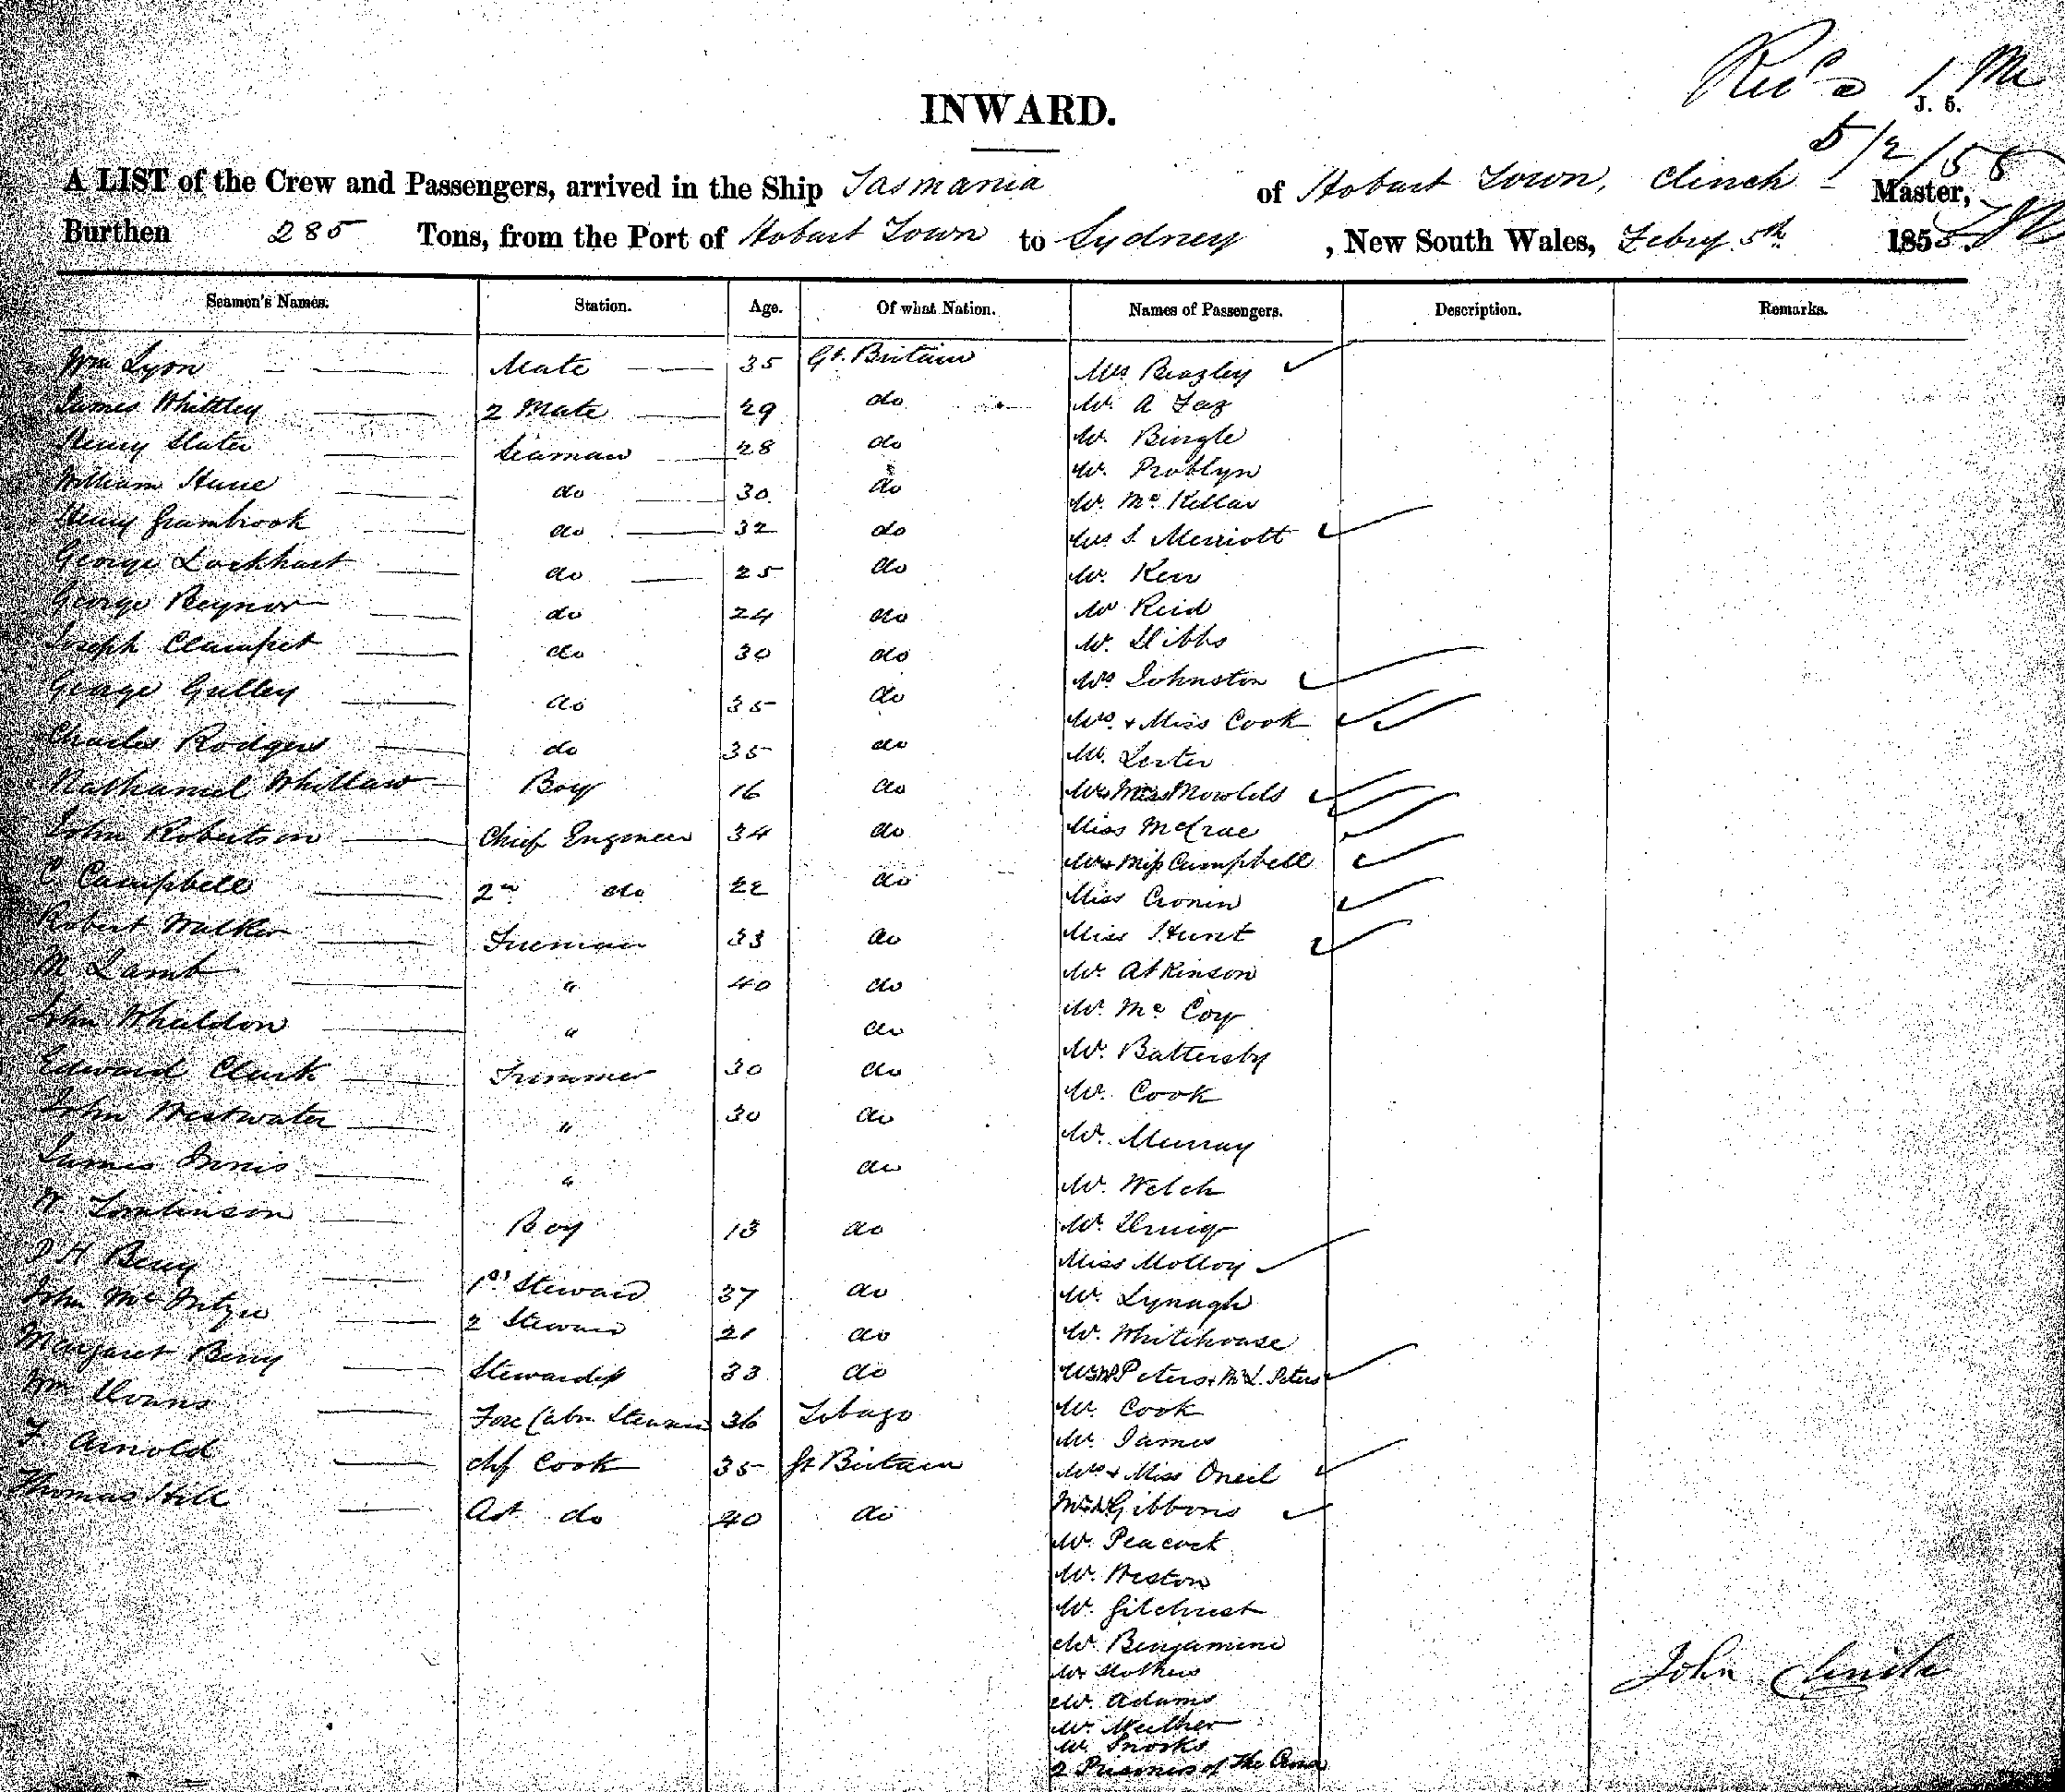 Recd 1 Mr
J. 5.
INWARD.
5/2/58
A LIST of the Crew and Passengers, arrived in the Ship Tasmania of Hobart Town, Clinch Master,
Burthen 285 Tons, from the Port of Hobart Town to Sydney, New South Wales, Febry 5th 1858
Seamen's Names. Station. Age. Of what Nation. Names of Passengers. Description. Remarks.
Wm Lyon Mate 35 Gt. Britain Mrs Beazley
James Whittley 2 Mate 29 do Mr. A
Henry Slater Seaman 28 do Mr. Bingle
William do 30 do Mr. Problyn
Mr. Mc Kellar
Henry Grambrook do 32 do Mrs S. Merriott
George Lockhart do 25 do Mr. Kerr
George Beynor do 24 do Mr Reid
Joseph Clampet do 30 do Mr. Dibbs
Mrs Johnston
George Gulley do 35 do Mrs. + Miss Cook
Charles Rodgers do 35 do Mr. Lester
Nathaniel Whitlaw Boy 16 do Mrs Miss Mowlds
John Robertson Chief Engineer 34 do Miss McCrae
Mrs + Miss Campbell
C Campbell 2nd do 22 do Miss Cronin
Robert Walker Fireman 33 do Miss Hunt
M Lamb " 40 do Mr. Atkinson
John Whaldon " do Mr. Mc Coy
Edward Clark Trimmer 30 do Mr. Battersby
Mr. Cook
John Westwater " 30 do Mr. Murray
James Innis " do Mr. Welch
W Tomlinson Boy 13 do Mr.
Miss Molloy
D H Berry 1st Steward 37 do Mr. Lynagh
John Mc 2 Steward 21 do Mr. Whitehouse
Margaret Berry Stewardess 33 do Peters + L. Peters
Wm Evans Fore Cabn Steward 36 Tobago Mr. Cook
Mr. James
F Arnold chf Cook 35 Gt Britain Mrs + Miss Oneil
Thomas Hill Ast do 40 do Gibbons
Mr. Peacock
Mr. Weston
Mr. Gilchrist
Mr. Benjamine
Mr
Mr. Adams
Mr.
Mr. Snooks
2 Prisoners of the
John Clinch